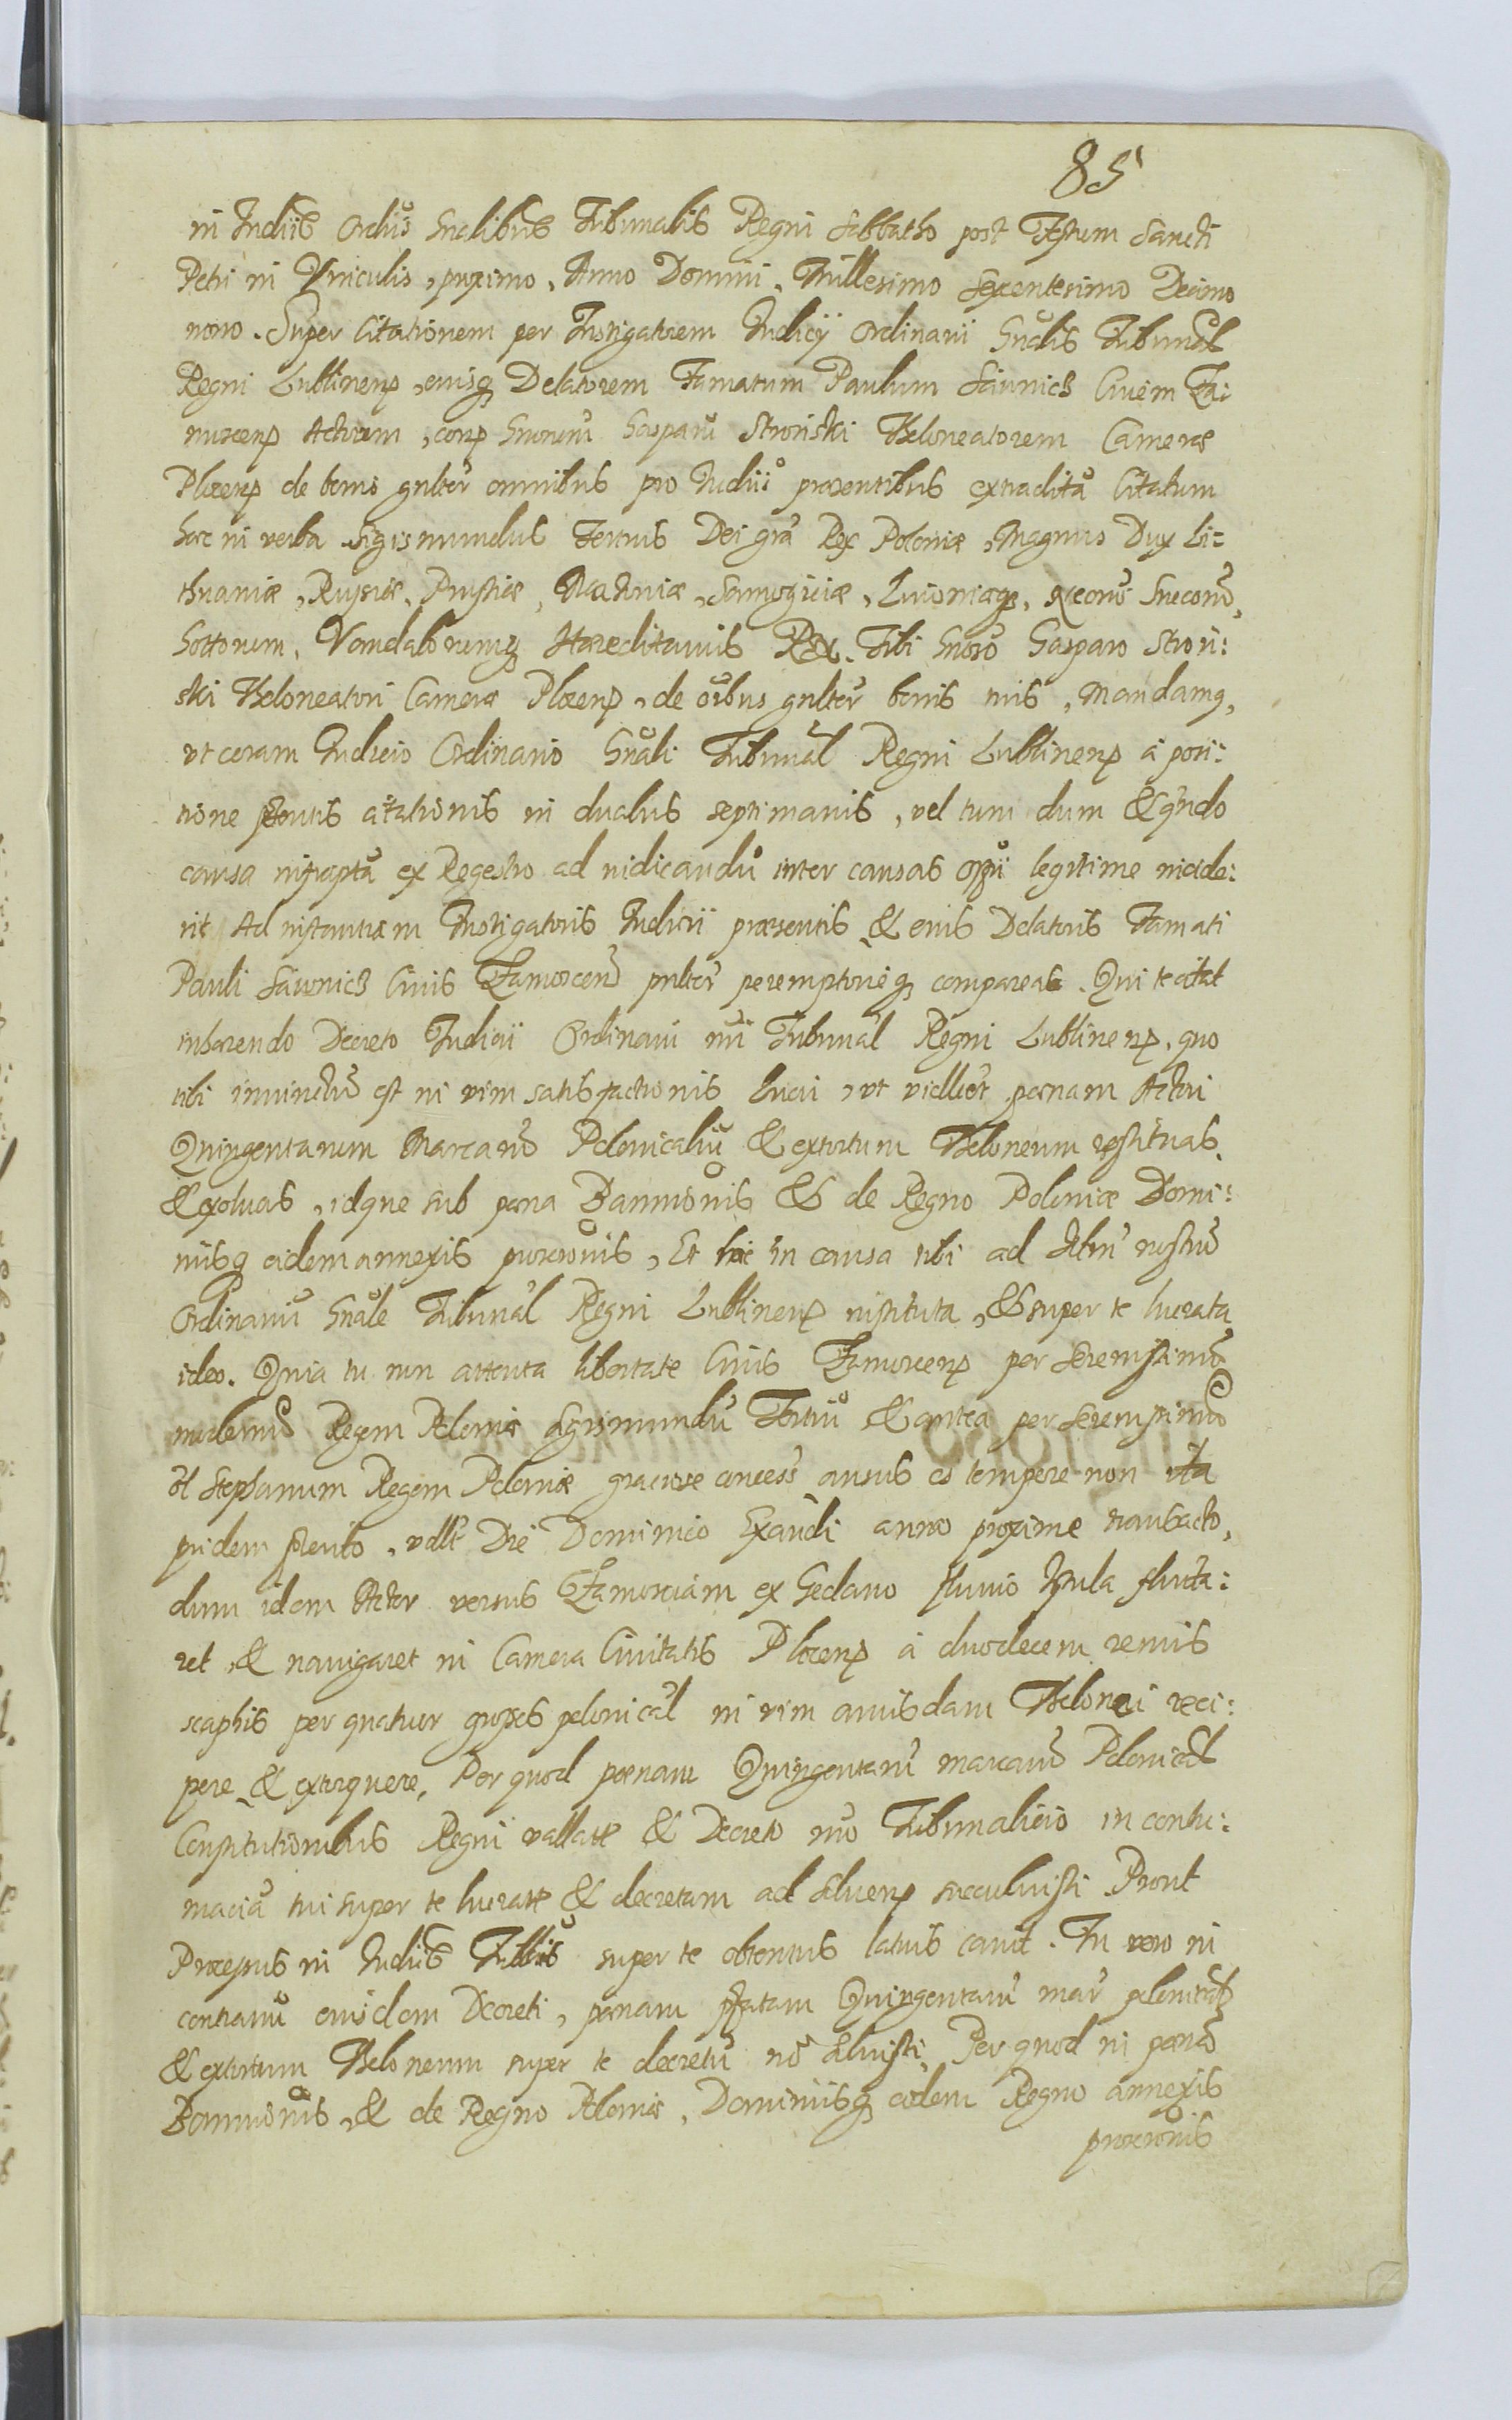 85
in Judiis Ordiis Gnalibus Tribunalis Regni Sabbatho post Festum Sancti
Petri in Vinculis, proximo, Anno Domini, Millesimo Sexcentesimo Decimo
nono. Super Citationem per Instigatorem Judicij Ordinarii Gnalis Tribunal
Regni Lublinens, eiusq Delatorem Famatum Paulum Civem Za:
moscens Actorem, Gnorum Gasparum Stroński Theloneatorem Camerae
Plocens de bonis gnlter omnibus pro Judiio praesentibus extraditam Citatum
haec in verba Sigismundus Tertius Dei gra Rex Poloniae, Magnus Dux Li:
thuaniae, Russiae, Prussiae, Masouiae, Samogitiae, Liuoniaeq, Suecorum,
Gottorum, Vandalorumq Haereditarius Rex. Tibi Gnoso Gasparo Stroń:
ski Theloneatori Camerae Plocens, de oibus gnlter bonis tuis, Mandamq,
vt coram Judicio Ordinario Gnali Tribunal Regni Lublinens a posi:
tione pntis citationis in duabus septimanis, vel tum dum & qndo
causa infrapta ex Regestro ad iudicandum inter causas legitime incide:
rit Ad instantiam Instigatoris Judicii praesentis & eius Delatoris Famati
Pauli Ciuis Zamoscens pnlter peremptorieq compareas. Qui te citat
inhaerendo Decreto Judicii Ordinarii Tribunal Regni Lublinens, quo
tibi iniunctum est in vim satisfactionis lucri, vt videlicet poenam Actori
Quingentarum Marcarum Polonicalium & extortum Theloneum restituas,
& exoluas, idque sub poena Bannitionis & de Regno Poloniae Domi:
niisq eidem annexis proscrionis, Et hac in causa tibi ad nostrum
Ordinarium Gnale Tribunal Regni Lublinens instituta, & super te lucrata
ideo. Quia tu non attenta libertate Ciuis Zamoscens per Serenissimum
modernum Regem Poloniae Sigismundum Tertium & antea per Serenissimum
ol Stephanum Regem Poloniae graciose concess ausus es tempore non ita
pridem, vdlt Die Dominico Exaudi anno proxime transacto,
dum idem Actor versus Zamosciam ex Gedano fluuio Istula fluita:
ret & nauigaret in Camera Ciuitatis Plocens a duodecem remis
scaphis per quatuor grosses polonical in vim cuiusdam Thelonei reci:
pere & extorquere, Per quod poenam Quingentarum marcarum Polonical
Constitutionibus Regni vallatae & Decreto Tribunalicio in contu:
maciam tui super te lucratae & decretam ad Soluens succubuisti Prout
Processus in Judiis Tribulis super te obtentus latius canit. Tu vero in
contrarium eiusdem Decreti, poenam pfatam Quingentarum mar polonical
& extortum Theloneum super te decretum non soluisti, Per quod in poenam
Bannitionis, & de Regno Poloniae, Dominiisq eidem Regno annexis
proscrionis